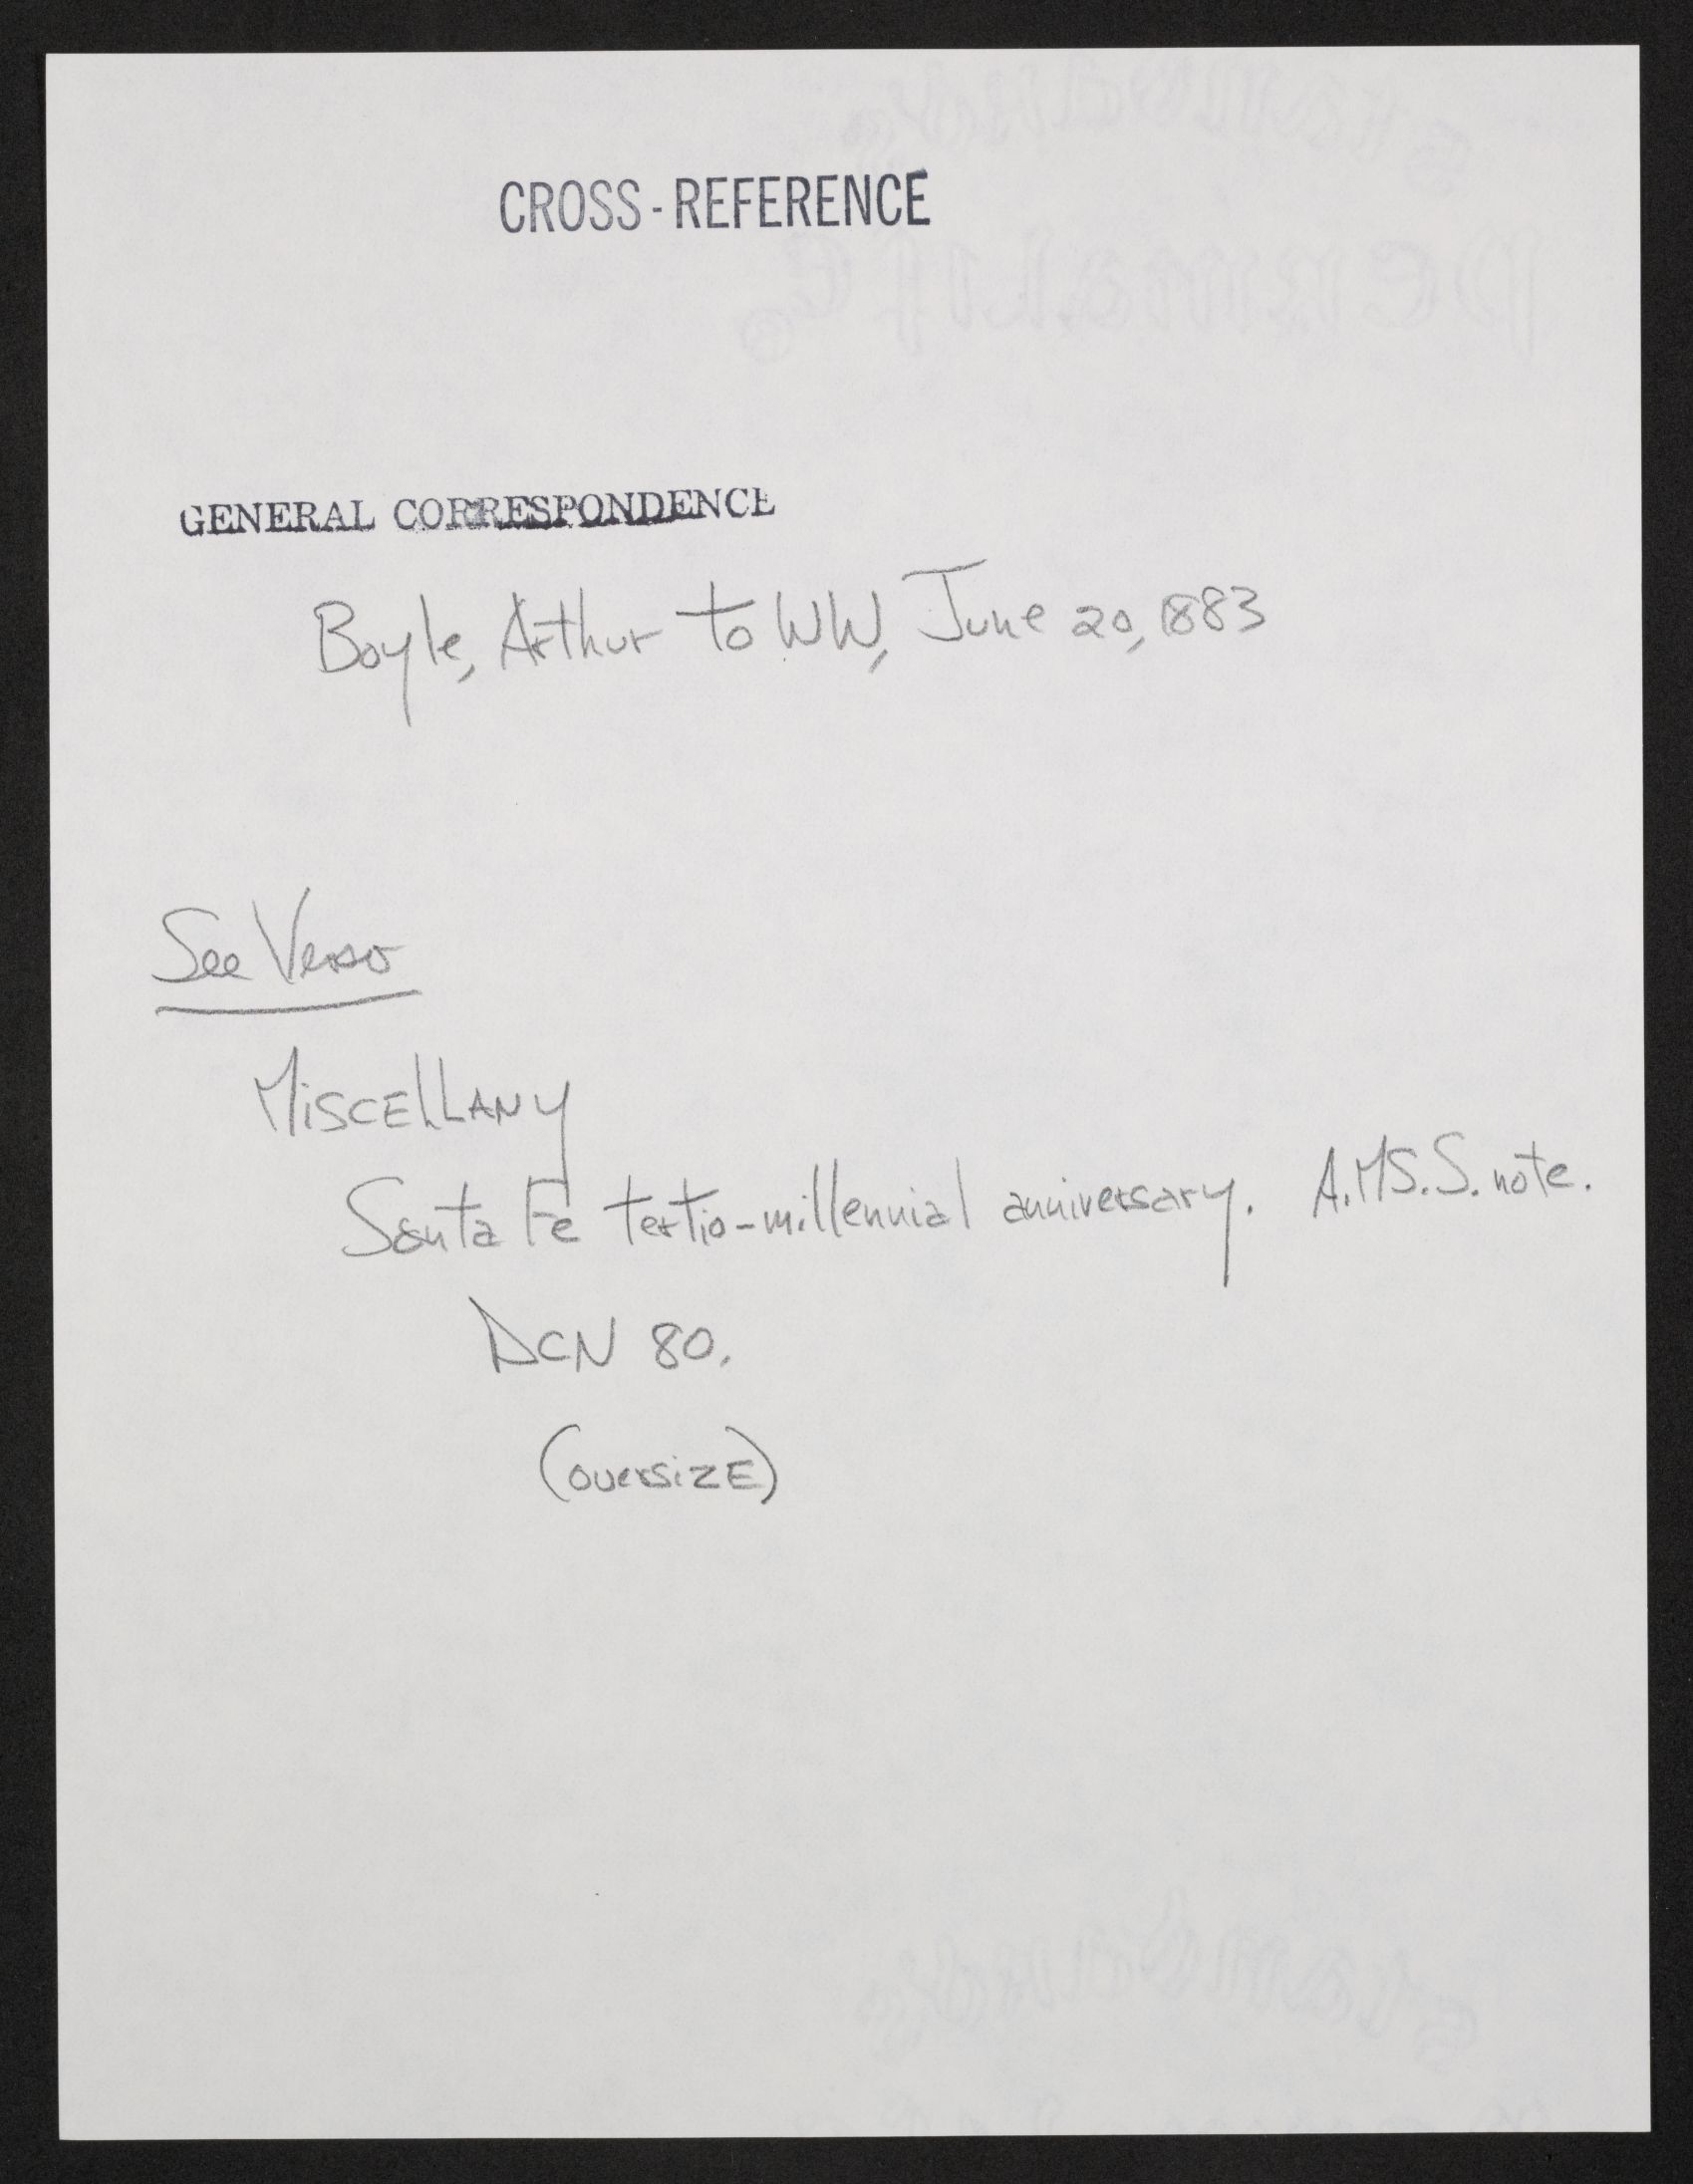 CROSS-REFERENCE
GENERAL CORRESPONDENCE
Boyle, Arthur to WW, June 20, 1883
See Verso
Miscellany
Santa Fe tertio-millennial anniversary. A.MS.S. note.
DCN 80.
(oversize)